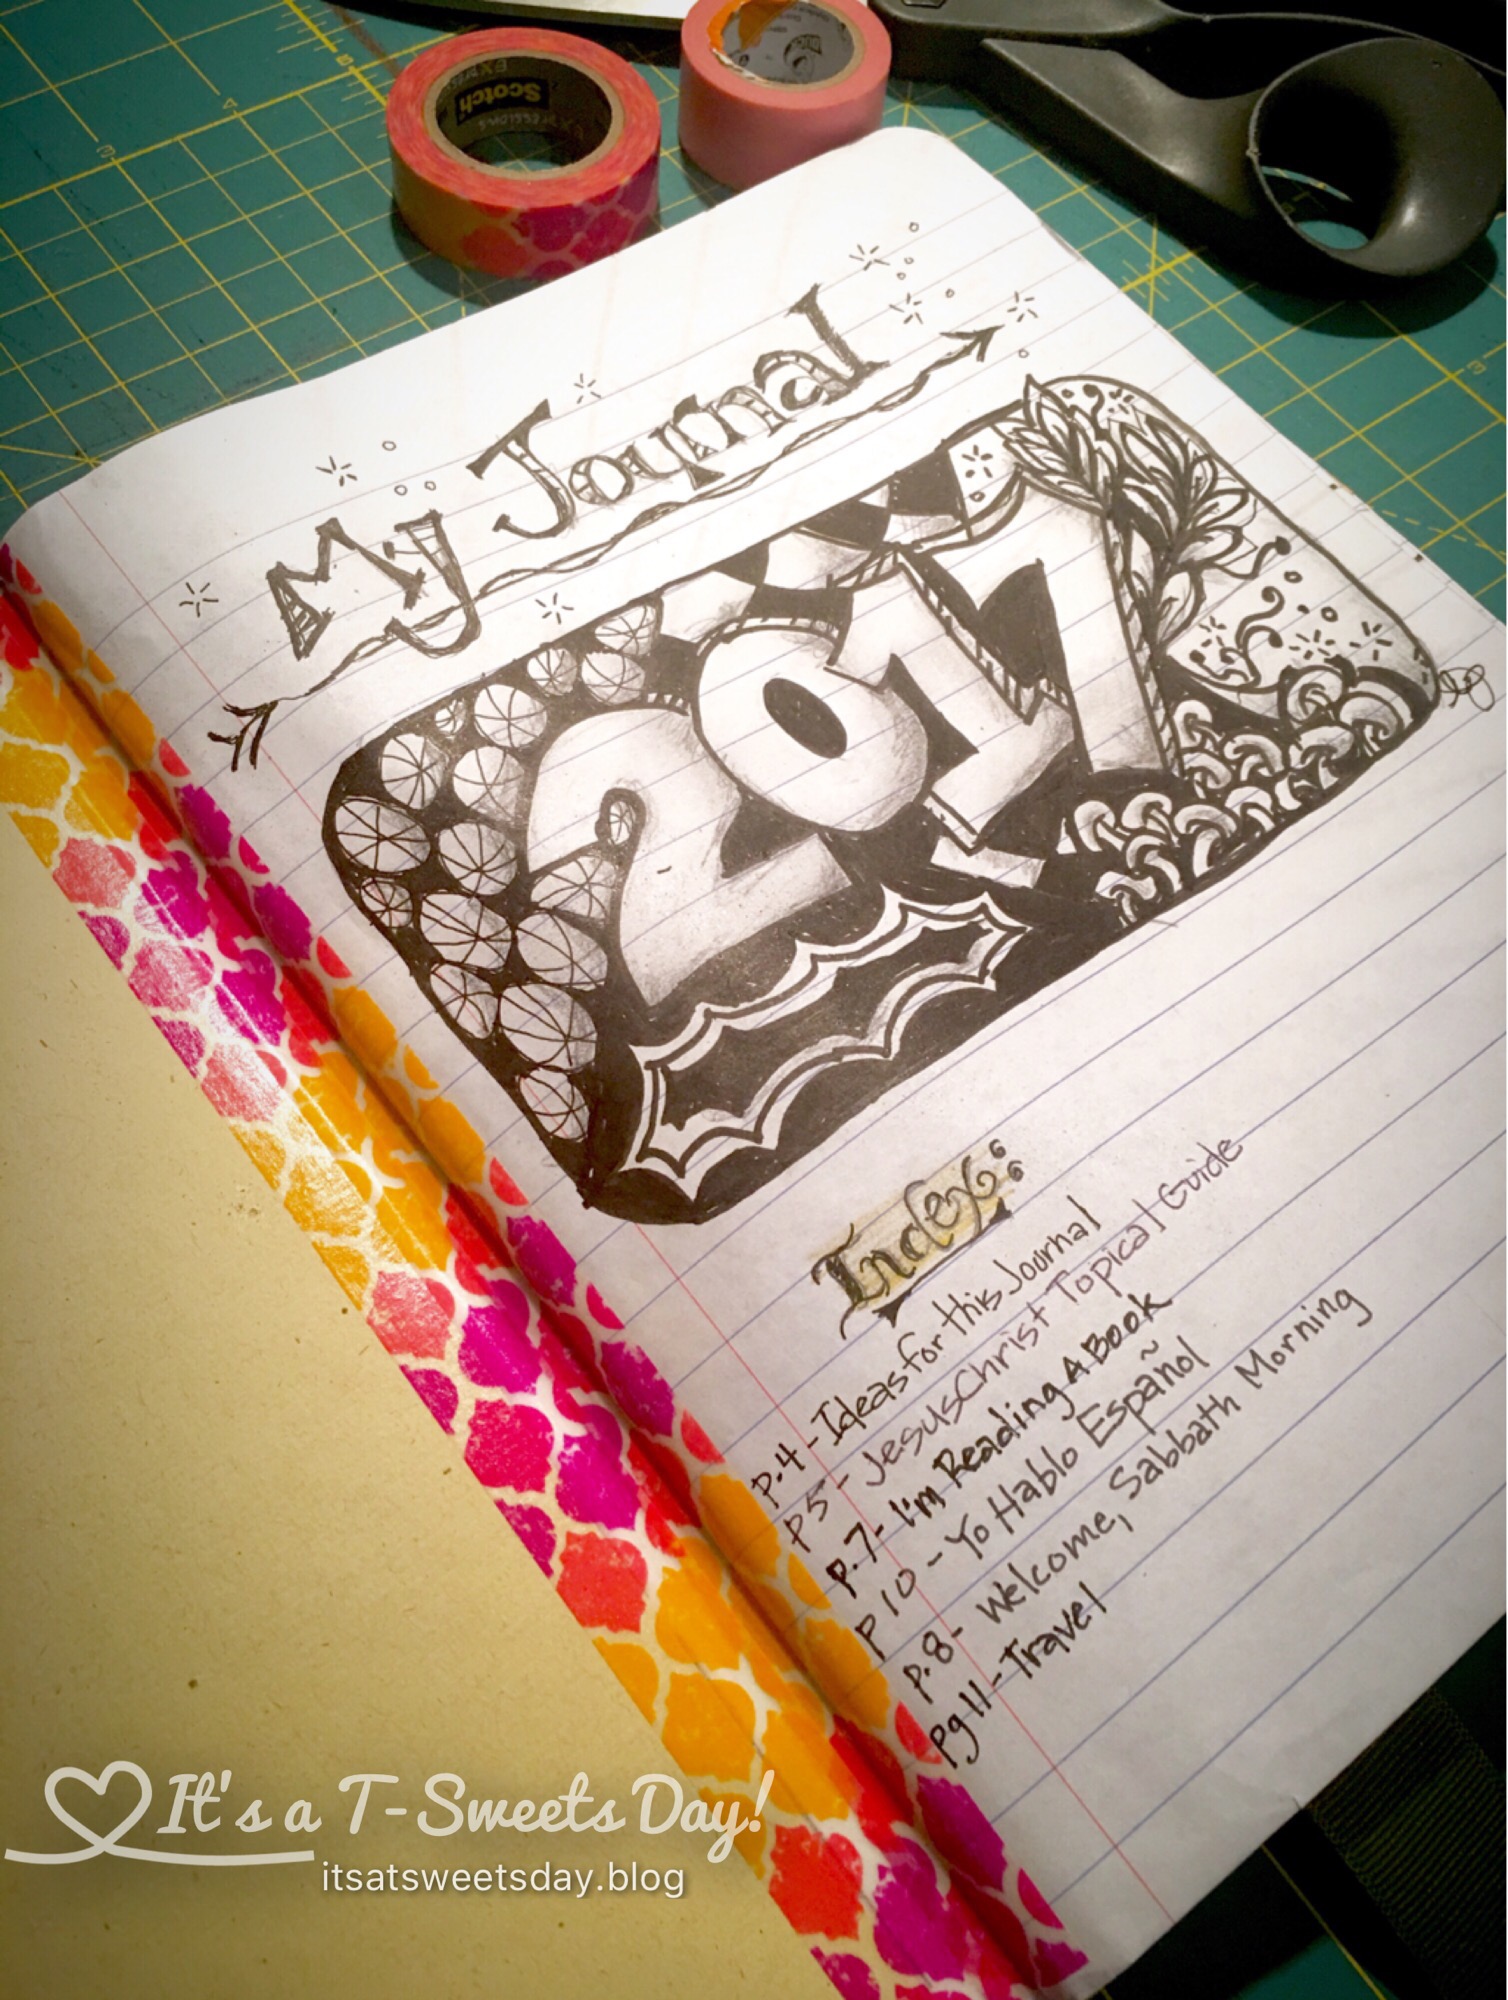 Scotch
EXPRESSIONS
My Journal
2017
Index:
p.4 - Ideas for this Journal
p5 - Jesus Christ Topical Guide
p.7 - I'm Reading A Book
p 10 - Yo Hablo Español
p.8 - Welcome, Sabbath Morning
Pg 11 - Travel
It's a T-Sweets Day!
itsatsweetsday.blog